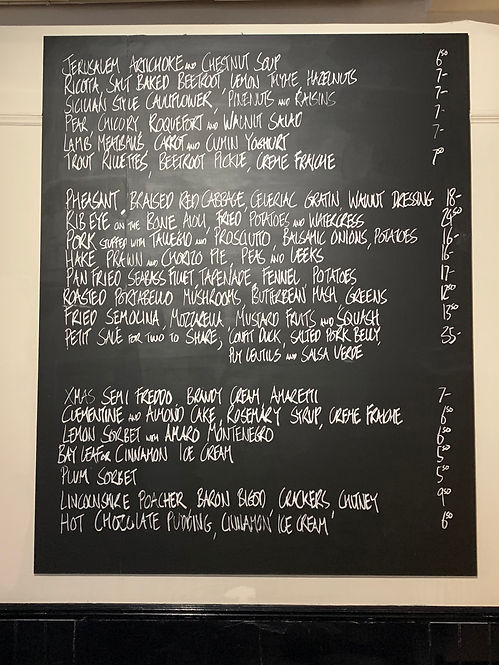 JERUSALEM ARTICHOKE AND CHESTNUT SOUP 6.50
RICOTTA, SALT BAKED BEETROOT, LEMON THYME, HAZELNUTS 7-
SICILIAN STYLE CAULIFLOWER, PINENUTS AND RAISINS 7-
PEAR CHICORY, ROQUEFORT AND WALNUT SALAD 7-
LAMB MEATBALLS, CARROT AND CUMIN YOGHURT 7-
TROUT RILLETTES, BEETROOT PICKLE, CREME FRAICHE 7.50
PHEASANT, BRAISED RED CABBAGE, CELERIAC GRATIN, WALNUT DRESSING 18-
RIB EYE ON THE BONE AIOLI, FRIED POTATOES AND WATERCRESS
PORK STUFFED WITH TALEGGIO AND PROSCIUTTO, BALSAMIC ONIONS, POTATOES 16-
HAKE, PRAWN AND CHORIZO PIE, PEAS AND LEEKS 16-
PAN FRIED SEABASS FILLET, TAPENADE, FENNEL, POTATOES 17-
ROASTED PORTABELLO MUSHROOMS, BUTTERBEAN MASH, GREENS 12.50
FRIED SEMOLINA, MOZZARELLA, MUSTARD FRUITS AND SQUASH 13.50
PETIT SALE FOR TWO TO SHARE, CONFIT DUCK, SALTED PORK BELLY, 35-
PUY LENTILS AND SALSA VERDE
XMAS SEMI FREDDO, BRANDY CREAM, AMARETTI 7-
CLEMENTINE AND ALMOND CAKE, ROSEMARY SYRUP, CREME FRAICHE 6.50
LEMON SORBET WITH AMARO MONTENEGRO 6.50
BAY LEAF OR CINNAMON ICE CREAM 5.50
PLUM SORBET 5.50
LINCOLNSHIRE POACHER, BARON BIGOD, CRACKERS, CHUTNEY 9.50
HOT CHOCOLATE PUDDING, CINNAMON ICE CREAM 6.50